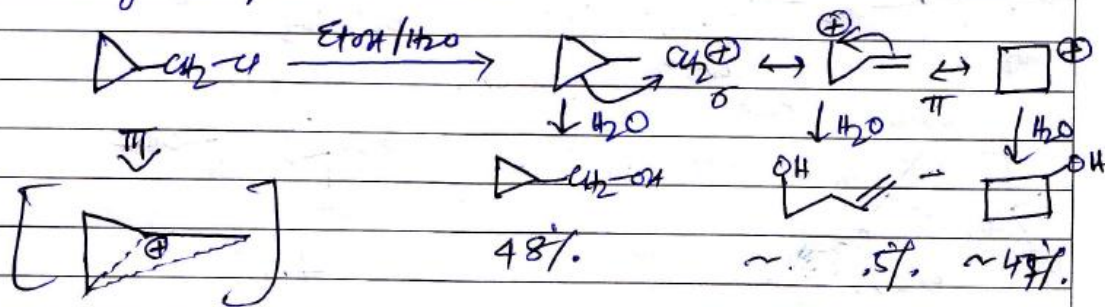 CH₂-Cl EtOH/H₂O CH₂⊕ ↔ ⊕ ↔ ⊕
σ π
↓ H₂O ↓ H₂O ↓ H₂O
CH₂-OH OH OH
⊕
48%. ~ .5%. ~47%.